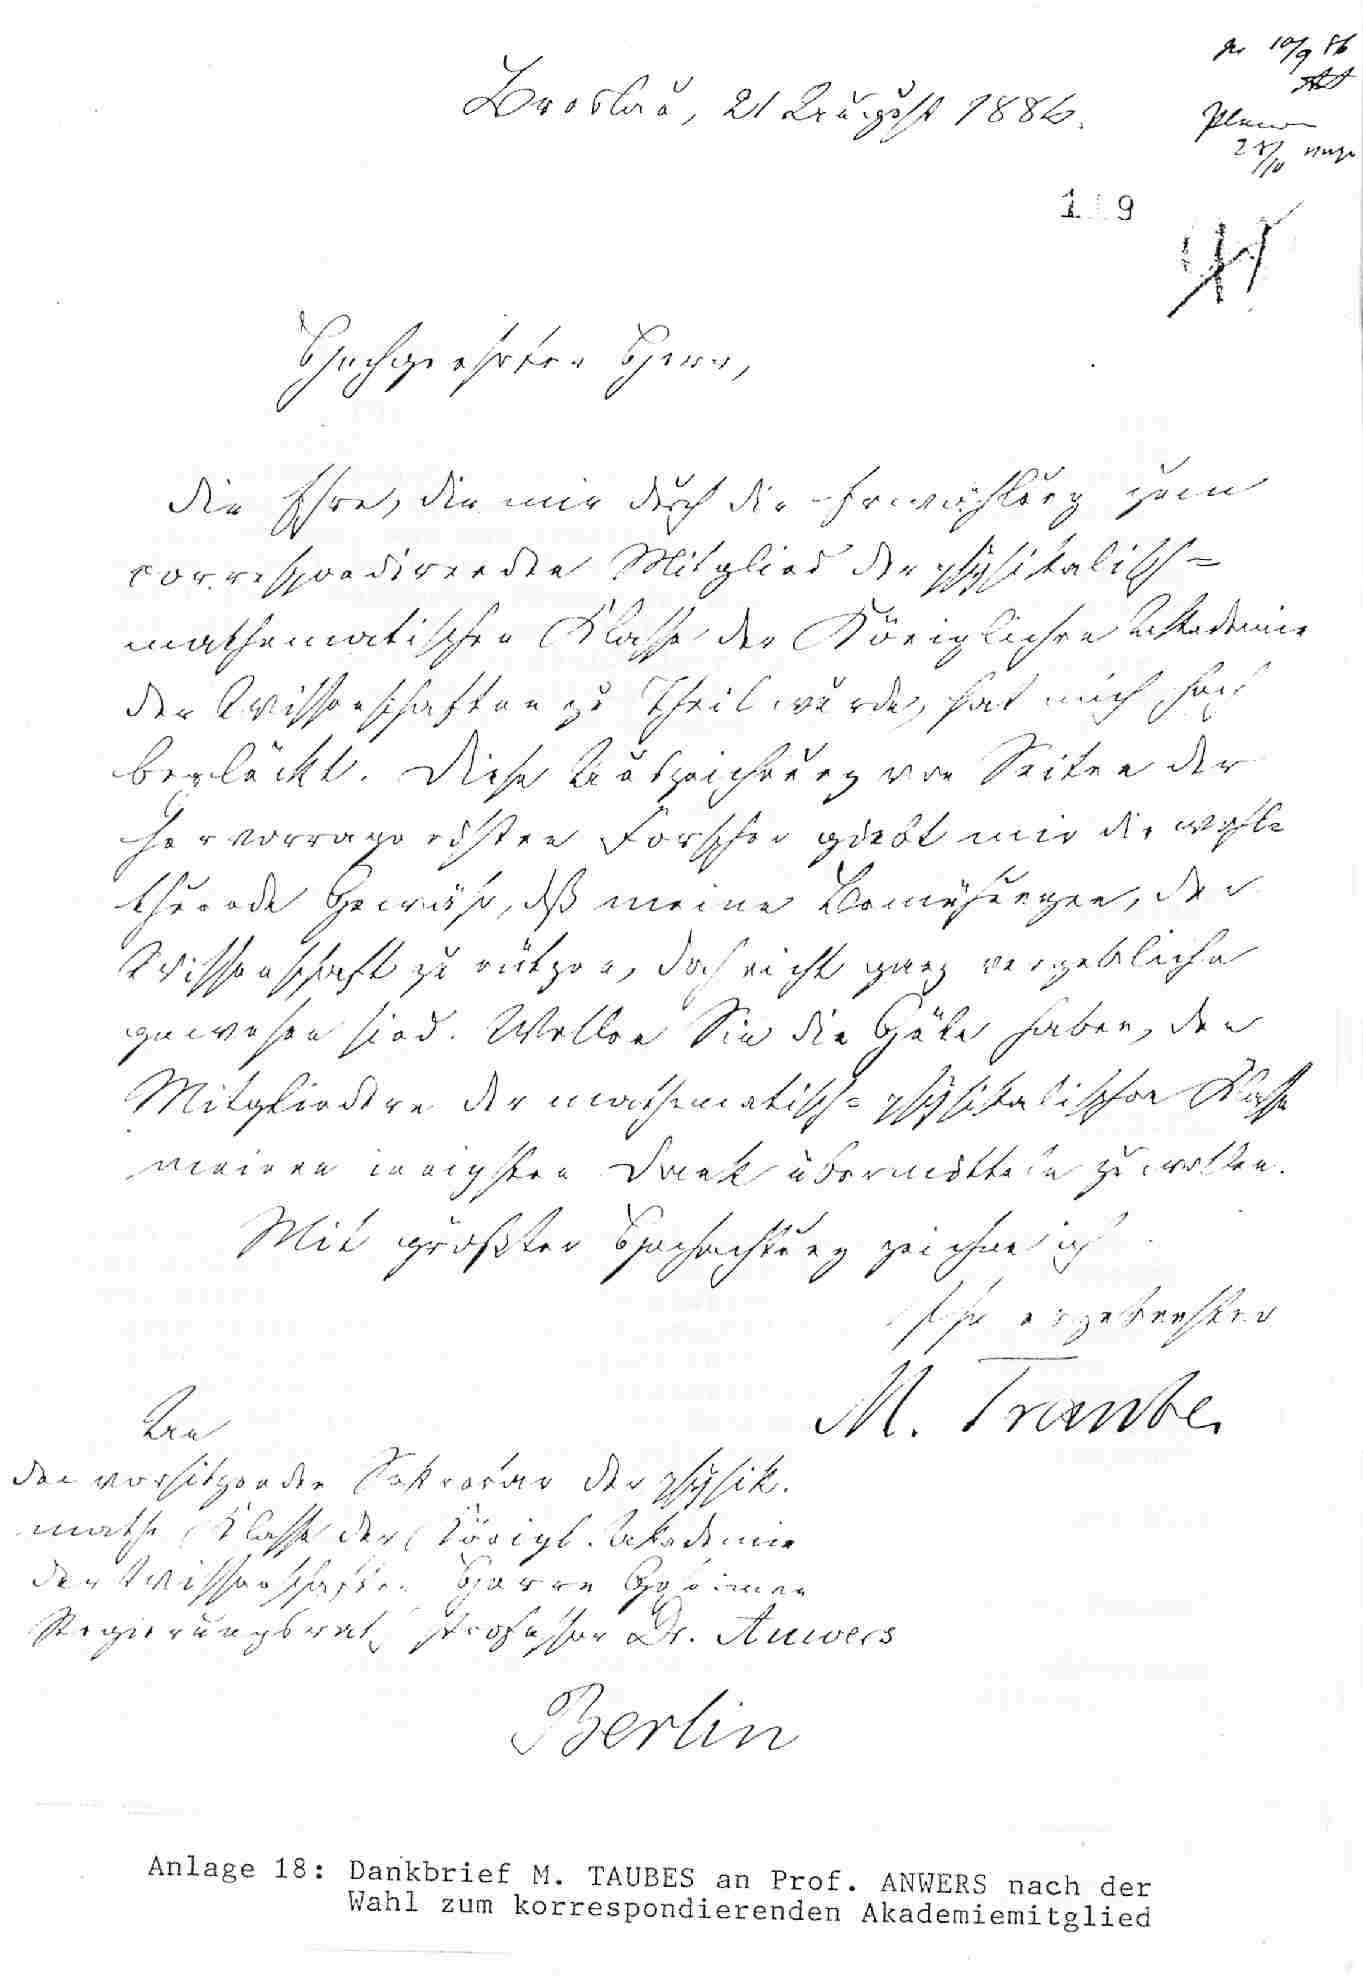 Breslau, 21 August 1886.
pr 10/9 86
Plenum
28/10
119
Hochgeehrter Herr,
die Ehre, die mir durch die Erwählung zum
correspondirenden Mitglied der physikalisch=
mathematischen Klasse der Königlichen Akademie
der Wissenschaften zu Theil wurde, hat mich hoch
beglückt. Diese Auszeichnung von Seiten der
hervorragendsten Forscher giebt mir die wohl=
thuende Gewähr, daß meine Bemühungen, der
Wissenschaft zu nützen, doch nicht ganz vergebliche
gewesen sind. Wollen Sie die Güte haben, den
Mitgliedern der mathematisch=physikalischen Klasse
meinen innigsten Dank übermitteln zu wollen.
Mit größter Hochachtung zeichne ich
Ihr ergebenster
M. Traube.
An
den vorsitzenden Sekretar der physik.
math. Klasse der Königl. Akademie
der Wissenschaften Herrn Geheimen
Regierungsrath Professor Dr. Auwers
Berlin
Anlage 18: Dankbrief M. TAUBES an Prof. ANWERS nach der
Wahl zum korrespondierenden Akademiemitglied